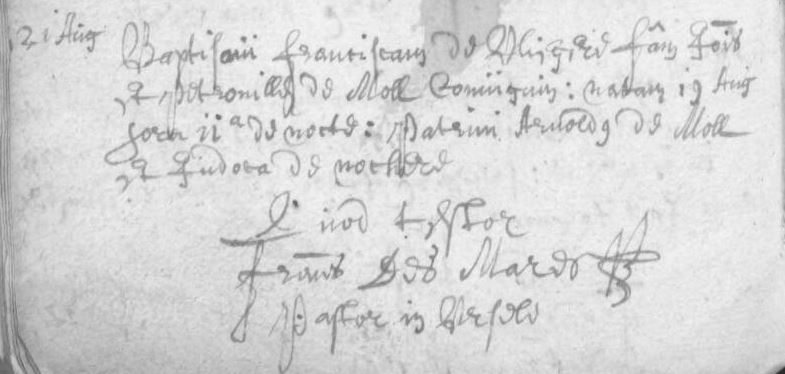 21 Aug Baptisavi franciscam de Vliegere fam Jois
et Petronillæ de Moll Coniugum: natam 19 Aug
hora 11a de nocte: Patrini Arnold9 de Moll
et Judoca de nockere
Quod testor
frans Des Mares
Pastor in Urssele